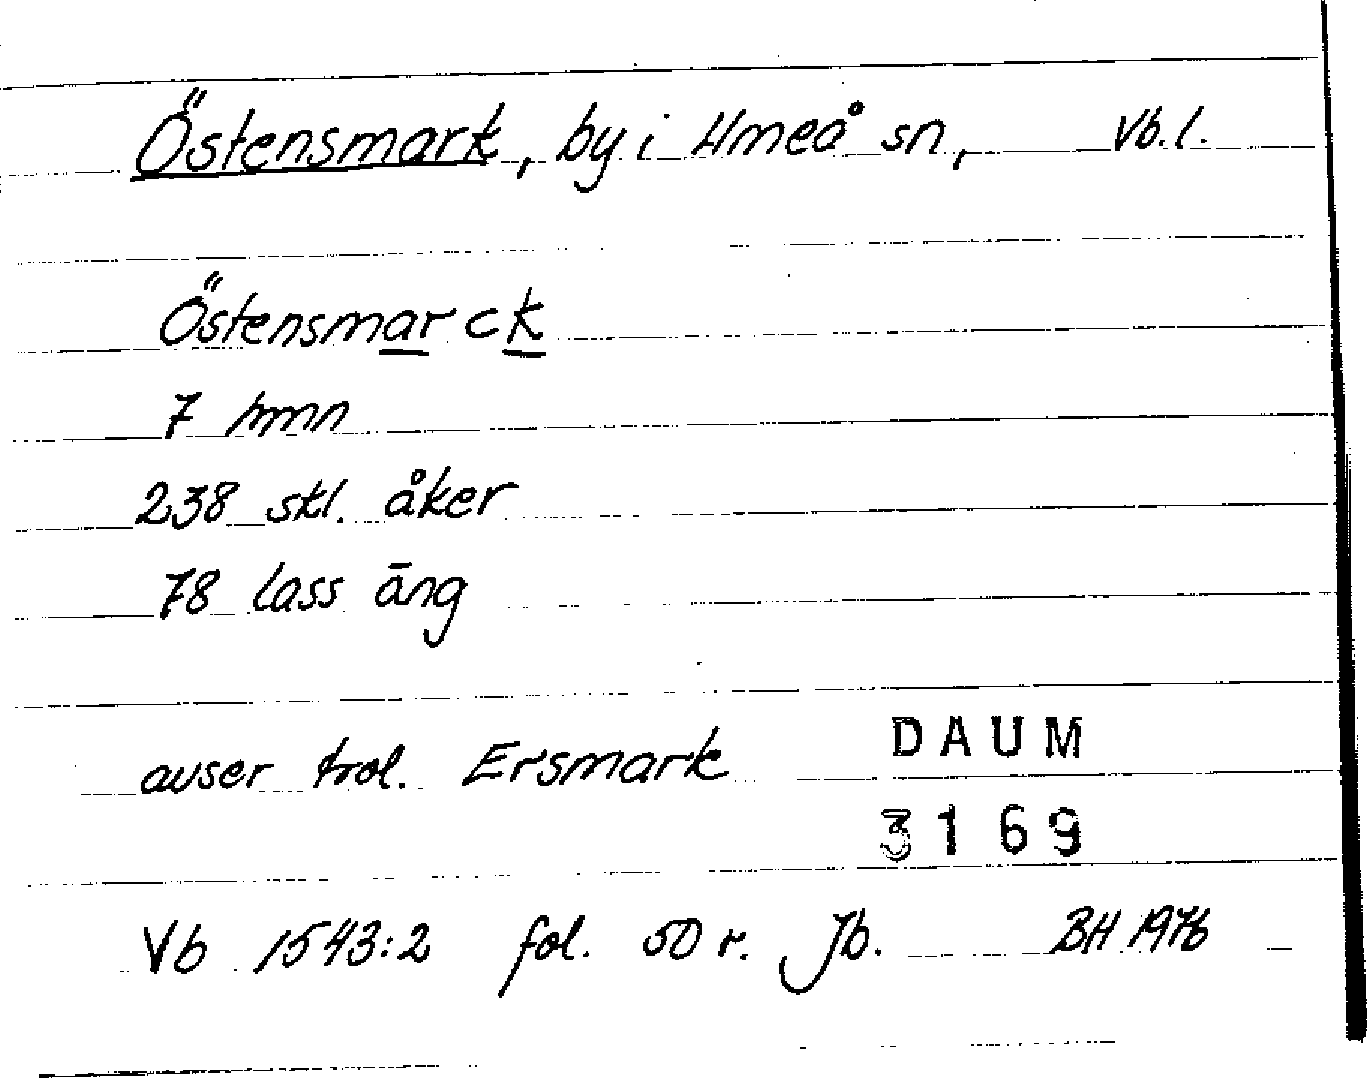 Östensmark, by i Umeå sn, Vb. l.
Östensmarck
7 hmn
238 skl. åker
78 lass äng
avser trol. Ersmark
DAUM
3169
Vb 1543:2 fol. 50 r. Jb. BH 1976